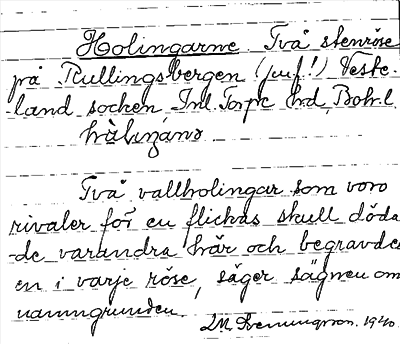 Holingarne. Två stenröse
på Rullingsbergen (juf!) Veste-
land socken Inl. Torpe hd, Boh.l.
Två vallholingar som voro
rivaler för en flickas skull döda-
de varandra här och begravdes
en i varje röse, säger sägnen om
namngrunden.
1940.